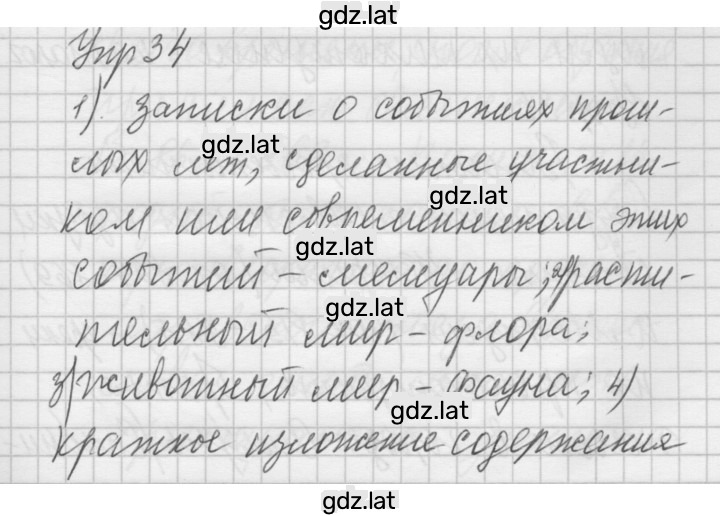 gdz.lat
Упр 34
1). Записки о событиях прош-
gdz.lat
лых лет, сделанные участни-
gdz.lat
ком или современником этих
gdz.lat
событий – мемуары; 2) расти-
gdz.lat
тельный мир – флора;
3) животный мир – фауна; 4)
gdz.lat
краткое изложение содержания
gdz.lat